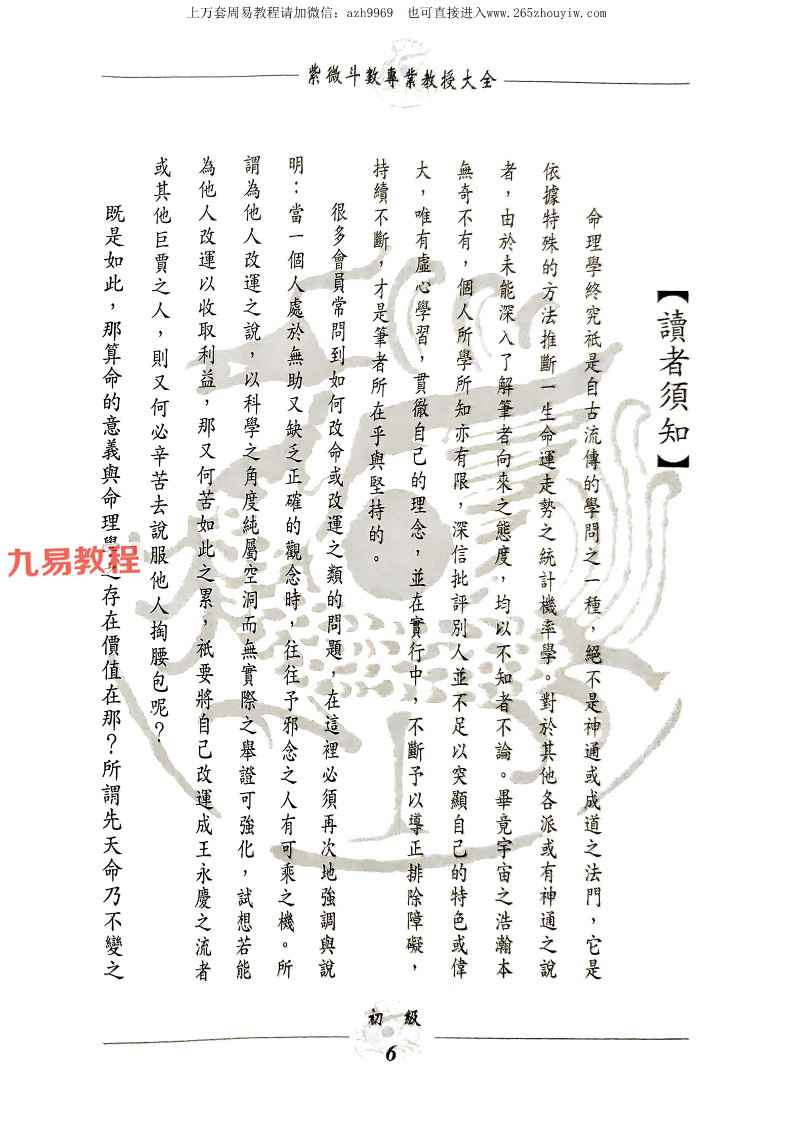 上万套周易教程请加微信：azh9969　也可直接进入www.265zhouyiw.com
紫微斗數專業教授大全
【讀者須知】
命理學終究祇是自古流傳的學問之一種，絕不是神通或成道之法門，它是
依據特殊的方法推斷一生命運走勢之統計機率學。對於其他各派或有神通之說
者，由於未能深入了解筆者向來之態度，均以不知者不論。畢竟宇宙之浩瀚本
無奇不有，個人所學所知亦有限，深信批評別人並不足以突顯自己的特色或偉
大，唯有虛心學習，貫徹自己的理念，並在實行中，不斷予以導正排除障礙，
持續不斷，才是筆者所在乎與堅持的。
很多會員常問到如何改命或改運之類的問題，在這裡必須再次地強調與說
明：當一個人處於無助又缺乏正確的觀念時，往往予邪念之人有可乘之機。所
謂為他人改運之說，以科學之角度純屬空洞而無實際之舉證可強化，試想若能
為他人改運以收取利益，那又何苦如此之累，祇要將自己改運成王永慶之流者
或其他巨賈之人，則又何必辛苦去說服他人掏腰包呢？
既是如此，那算命的意義與命理學之存在價值在那？所謂先天命乃不變之
九易教程
初級
6